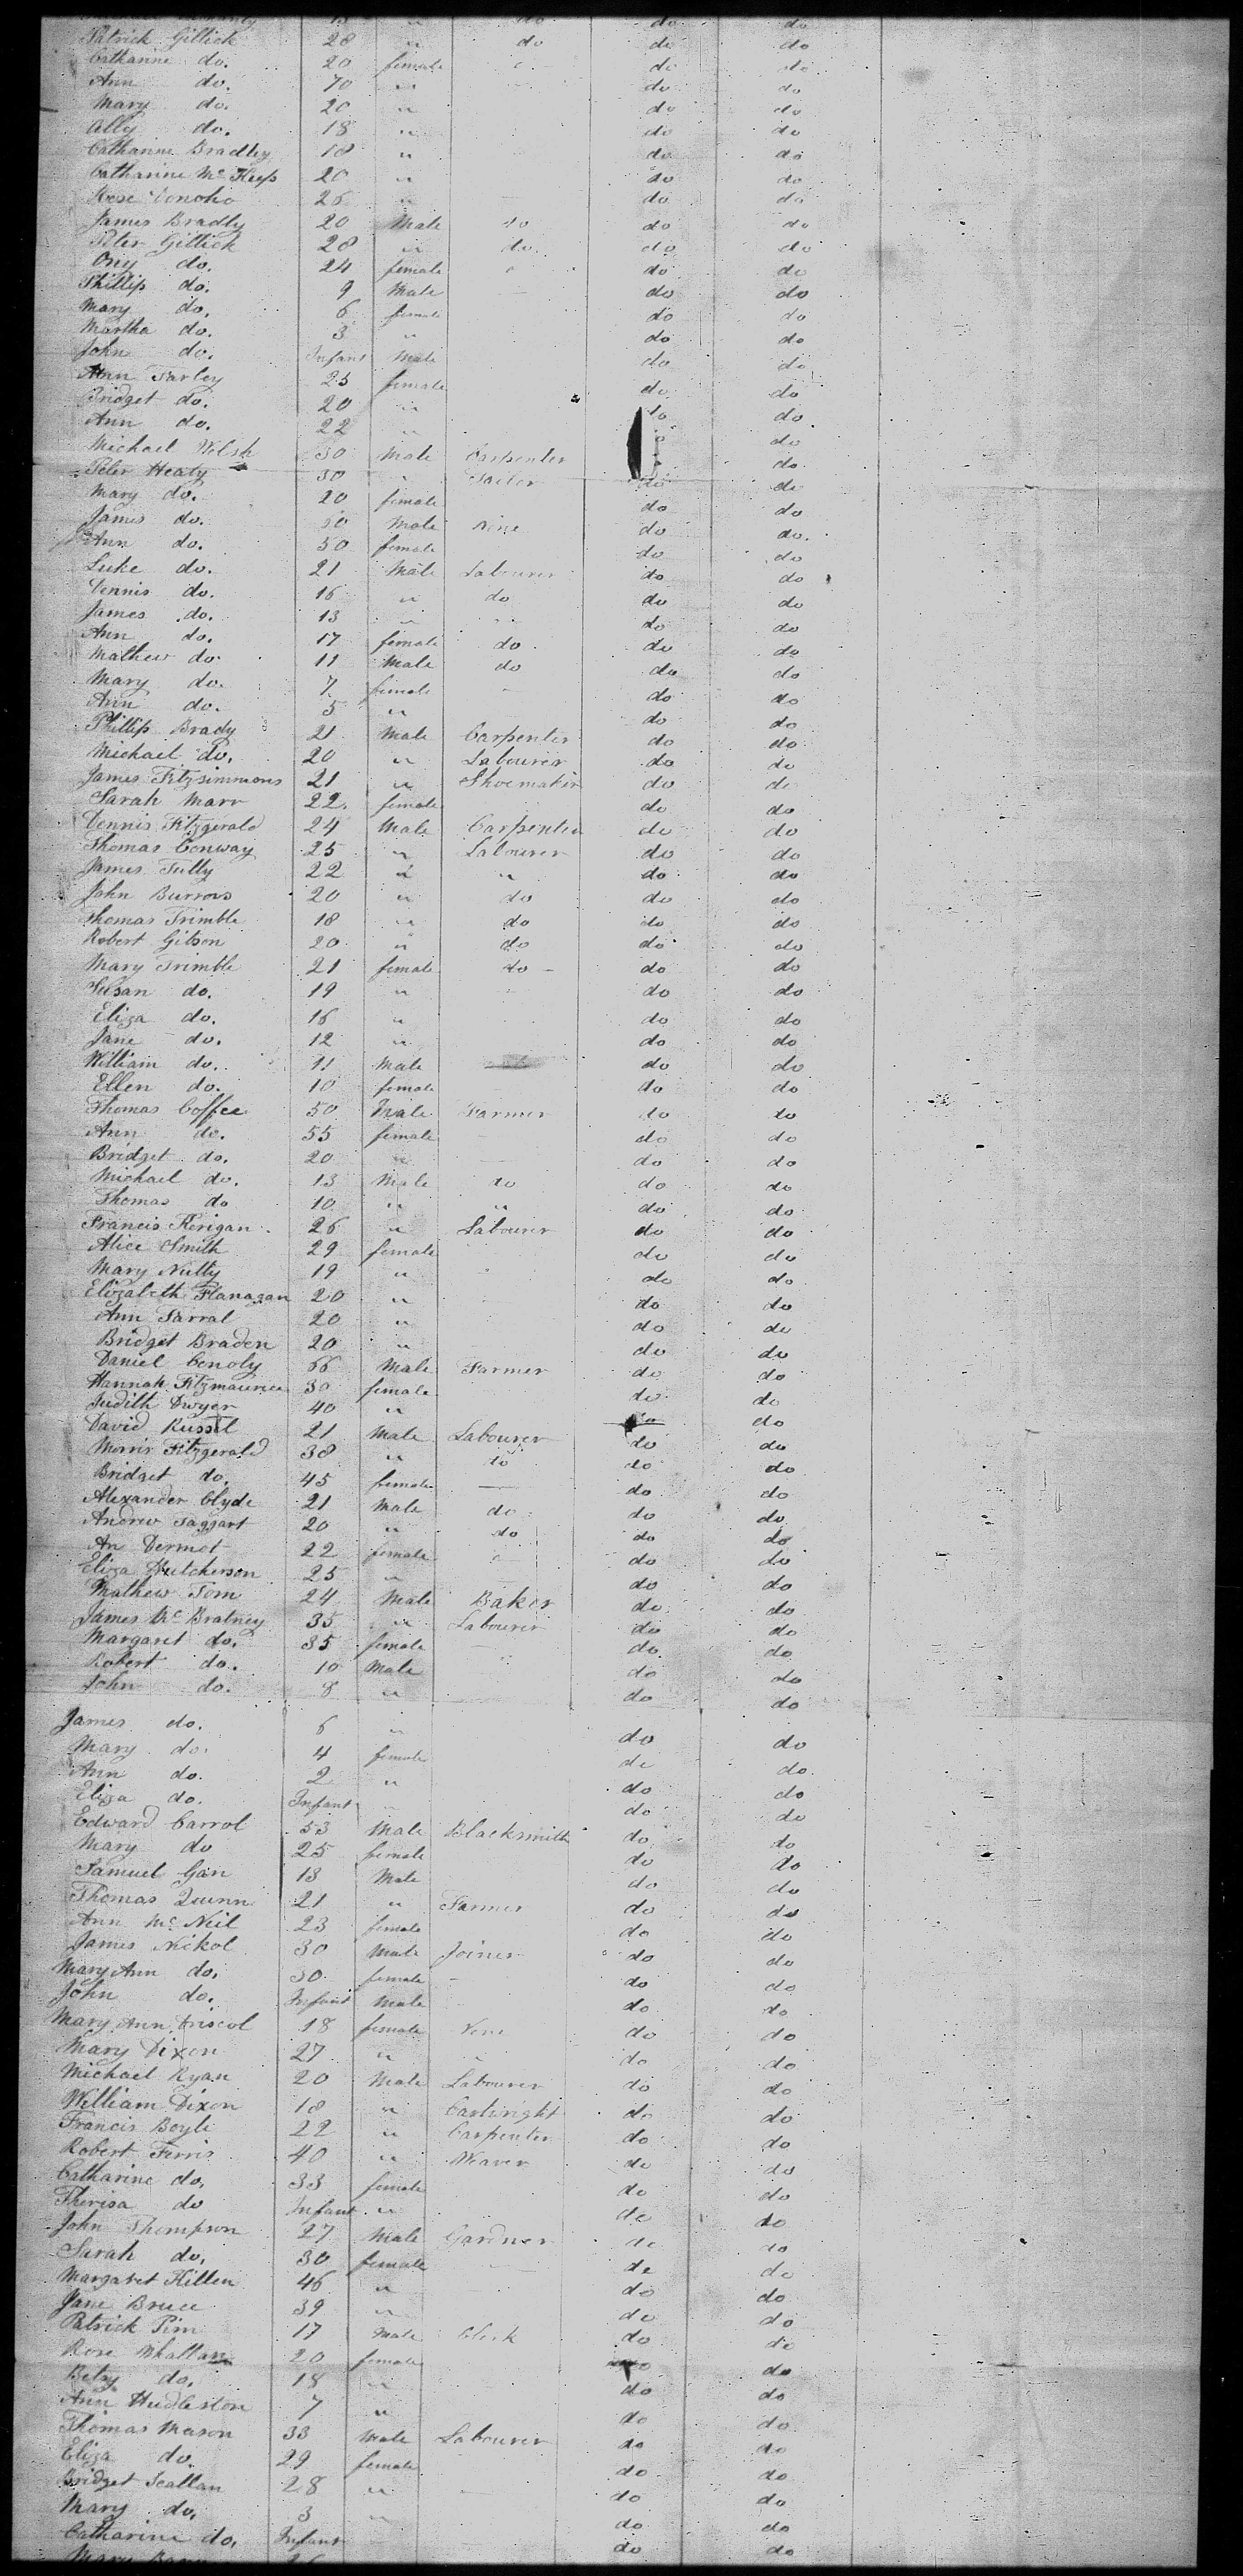 Patrick Gillick 28 " do do do
Catharine do. 20 female " do do
Ann do. 70 " do do
Mary do. 20 " do do
Ally do. 18 " do do
Catharine Bradley 18 " do do
Catharine Mc Keep 20 " do do
Rose Donoho 26 " do do
James Bradly 20 Male do do do
Peter Gillick 28 " do do do
Ony do. 24 female " do do
Phillip do. 9 Male do do
Mary do. 6 female do do
Martha do. 3 " do do
John do. Infant Male do do
Ann Farley 25 female do do
Bridget do. 20 " do do
Ann do. 22 " do do
Michael Welsh 30 Male Carpenter do do
Peter Heaty 30 " Tailor do do
Mary do. 20 female do do
James do. 50 Male do do.
Ann do. 50 female do do
Luke do. 21 Male Labourer do do
Dennis do. 16 " do do do
James do. 13 " " do do
Ann do. 17 female do do do
Mathew do. 11 Male do do do
Mary do. 7 female do do
Ann do. 5 " do do
Phillip Brady 21 Male Carpenter do do
Michael do. 20 " Labourer do do
James Fitzsimmons 21 " Shoemaker do do
Sarah Marr 22 female do do
Dennis Fitzgerald 24 Male Carpenter do do
Thomas Conway 25 " Labourer do do
James Tully 22 " " do do
John Burrows 20 " do do do
Thomas Trimble 18 " do do do
Robert Gibson 20 " do do do
Mary Trimble 21 female do do do
Susan do. 19 " do do
Eliza do. 16 " do do
Jane do. 12 " do do
William do. 11 Male do do
Ellen do. 10 female do do
Thomas Coffee 50 Male Farmer do do
Ann do. 55 female do do
Bridget do. 20 " do do
Michael do. 13 Male do do do
Thomas do 10 " " do do
Francis Kerigan 26 " Labourer do do
Alice Smith 29 female do do
Mary Nulty 19 " do do
Elizabeth Flanagan 20 " do do
Ann Farral 20 " do do
Bridget Braden 20 " do do
Daniel Conoly 66 Male Farmer do do
Hannah Fitzmaurice 30 female do do
Judith Dwyer 40 " do do
David Russel 21 Male Labourer do do
Morris Fitzgerald 38 " do do do
Bridget do. 45 female do do
Alexander Clyde 21 Male do do do
Andrew Taggart 20 " do do do
An Dermot 22 female do do
Eliza Hutcherson 25 " do do
Mathew Tom 24 Male Baker do do
James Mc Bratney 35 " Labourer do do
Margaret do. 35 female do do
Robert do. 10 Male do do
John do. 8 " do do
James do. 6 " do do
Mary do. 4 female do do
Ann do. 2 " do do
Eliza do. Infant do do
Edward Carrol 53 Male Blacksmith do do
Mary do 25 female do do
Samuel Gan 18 Male do do
Thomas Quinn 21 " Farmer do do
Ann Mc Neil 23 female do do
James Nickol 30 Male Joiner do do
Mary Ann do. 30 female do do
John do. Infant Male do do
Mary Ann Driscol 18 female None do do
Mary Dixon 27 " " do do
Michael Ryan 20 Male Labourer do do
William Dixon 18 " Cartwright do do
Francis Boyle 22 " Carpenter do do
Robert Ferris 40 " Weaver do do
Catharine do. 33 female do do
Therisa do Infant " do do
John Thompson 27 Male Gardner do do
Sarah do. 30 female do do
Margaret Killen 46 " do do
Jane Bruce 39 " do do
Patrick Pim 17 Male Clerk do do
Rose Whallan 20 female do do
Betsy do. 18 " do do
Ann Hudleston 7 " do do
Thomas Mason 33 Male Labourer do do
Eliza do. 29 female do do
Bridget Scallan 28 " do do
Mary do. 3 " do do
Catharine do. Infant do do